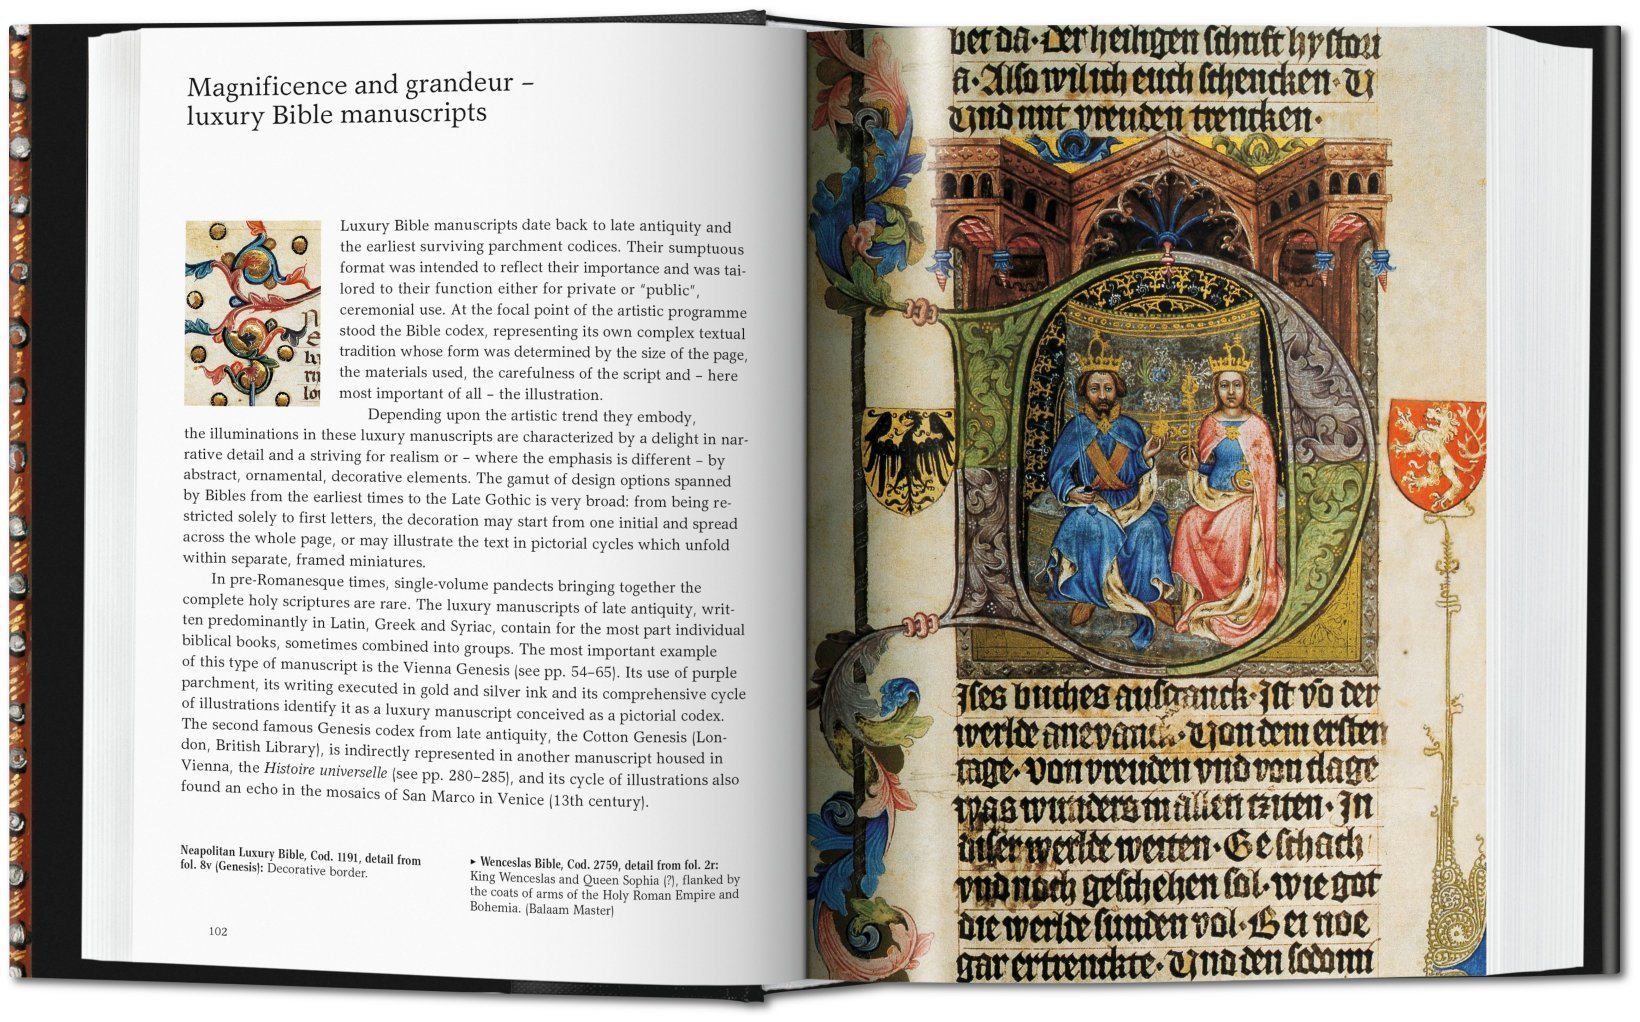 Magnificence and grandeur –
luxury Bible manuscripts
Luxury Bible manuscripts date back to late antiquity and
the earliest surviving parchment codices. Their sumptuous
format was intended to reflect their importance and was tai-
lored to their function either for private or “public”,
ceremonial use. At the focal point of the artistic programme
stood the Bible codex, representing its own complex textual
tradition whose form was determined by the size of the page,
the materials used, the carefulness of the script and – here
most important of all – the illustration.
Depending upon the artistic trend they embody,
the illuminations in these luxury manuscripts are characterized by a delight in nar-
rative detail and a striving for realism or – where the emphasis is different – by
abstract, ornamental, decorative elements. The gamut of design options spanned
by Bibles from the earliest times to the Late Gothic is very broad: from being re-
stricted solely to first letters, the decoration may start from one initial and spread
across the whole page, or may illustrate the text in pictorial cycles which unfold
within separate, framed miniatures.
In pre-Romanesque times, single-volume pandects bringing together the
complete holy scriptures are rare. The luxury manuscripts of late antiquity, writ-
ten predominantly in Latin, Greek and Syriac, contain for the most part individual
biblical books, sometimes combined into groups. The most important example
of this type of manuscript is the Vienna Genesis (see pp. 54–65). Its use of purple
parchment, its writing executed in gold and silver ink and its comprehensive cycle
of illustrations identify it as a luxury manuscript conceived as a pictorial codex.
The second famous Genesis codex from late antiquity, the Cotton Genesis (Lon-
don, British Library), is indirectly represented in another manuscript housed in
Vienna, the Histoire universelle (see pp. 280–285), and its cycle of illustrations also
found an echo in the mosaics of San Marco in Venice (13th century).
Neapolitan Luxury Bible, Cod. 1191, detail from
fol. 8v (Genesis): Decorative border.
▸ Wenceslas Bible, Cod. 2759, detail from fol. 2r:
King Wenceslas and Queen Sophia (?), flanked by
the coats of arms of the Holy Roman Empire and
Bohemia. (Balaam Master)
102
bet da · der heiligen schrift hystori
a · Also wil ich euch schencken · U
Und mit vreuden trencken ·
D
Ises buches ausganck · Ist vō der
werlde anevanck · Von dem ersten
tage · von vreuden vnd von clage
was wunders in allen tziten · In
diser werlde weiten · Geschach
vnd noch geschehen sol · wie got
die werlde sunden vol · Bei noe
gar ertrenckte · Und den sodom